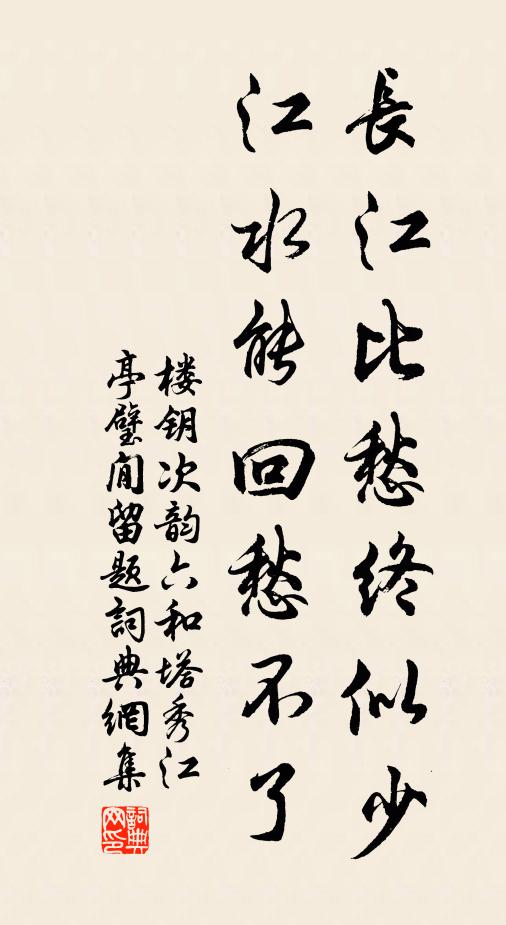 長江比愁終似少
江水能回愁不了
楼钥次韵六和塔秀江
亭璧间留题詞典網集
詞典网印